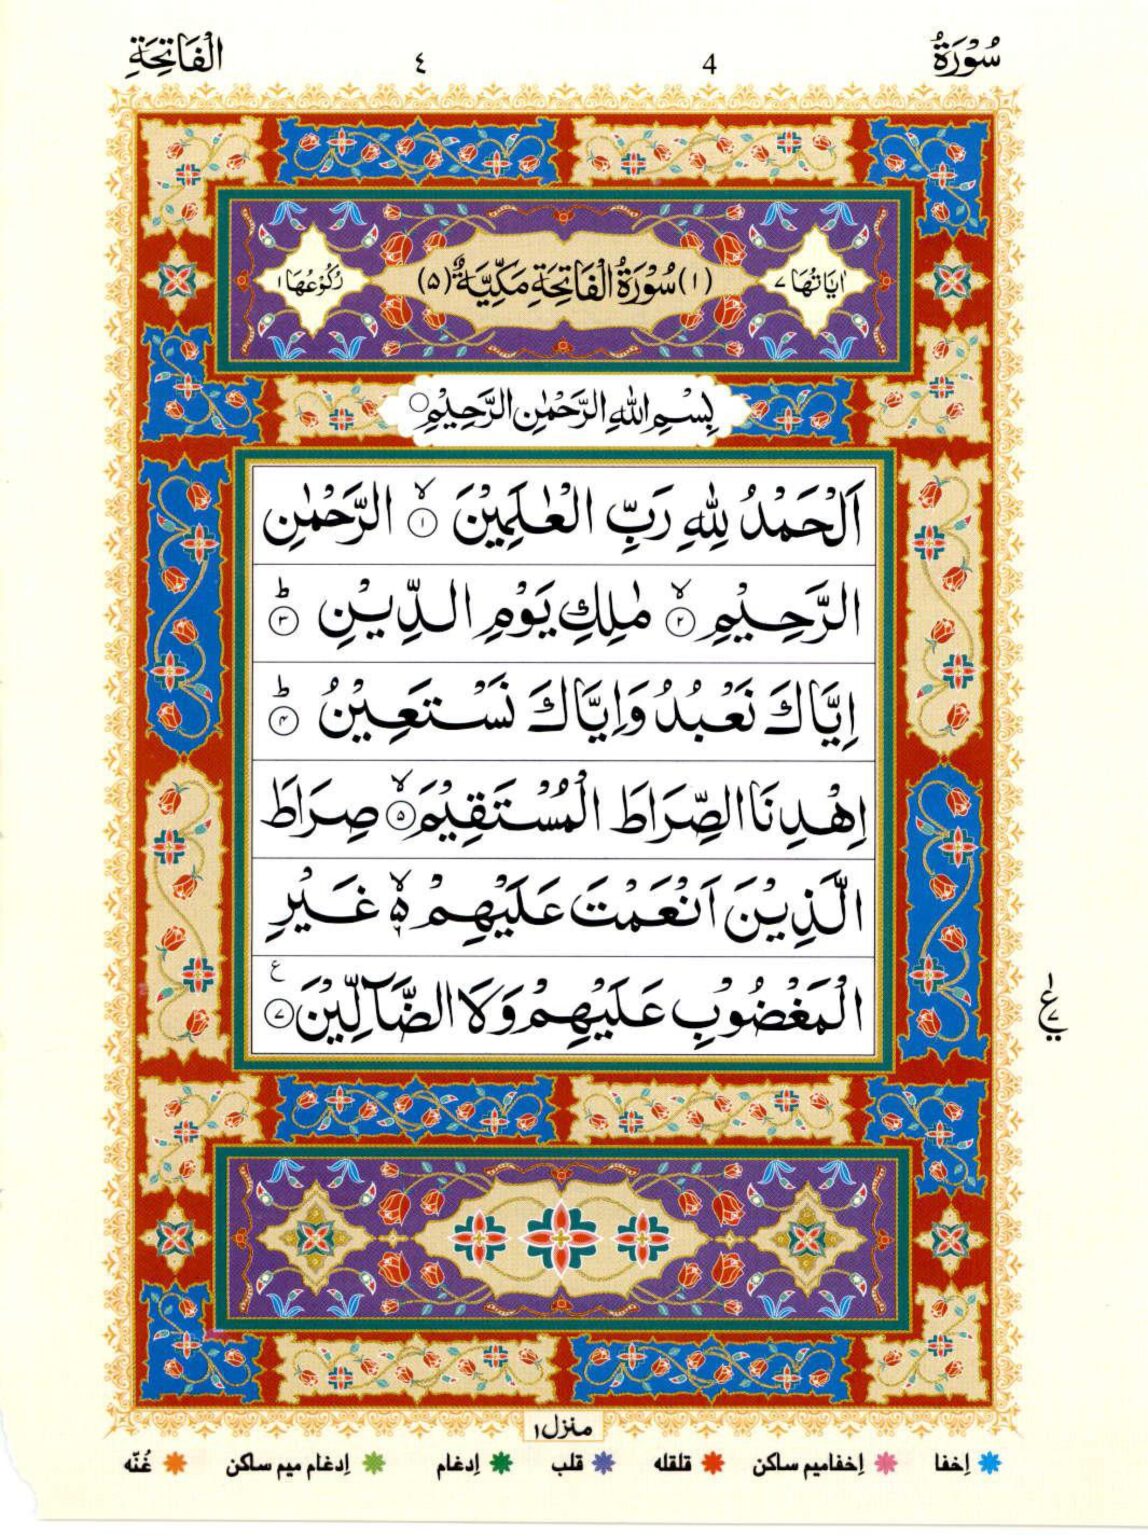 سُوْرَةُ 4 ٤ الْفَاتِحَةِ
اٰيَاتُهَا ٧ (١) سُوْرَةُ الْفَاتِحَةِ مَكِّيَّةٌ (٥) رُكُوْعُهَا ١
بِسْمِ اللّٰهِ الرَّحْمٰنِ الرَّحِيْمِ ○
اَلْحَمْدُ لِلّٰهِ رَبِّ الْعٰلَمِيْنَ ۙ﴿۱﴾ الرَّحْمٰنِ
الرَّحِيْمِ ۙ﴿۲﴾ مٰلِكِ يَوْمِ الدِّيْنِ ؕ﴿۳﴾
اِيَّاكَ نَعْبُدُ وَاِيَّاكَ نَسْتَعِيْنُ ؕ﴿۴﴾
اِهْدِنَا الصِّرَاطَ الْمُسْتَقِيْمَ ۙ﴿۵﴾ صِرَاطَ
الَّذِيْنَ اَنْعَمْتَ عَلَيْهِمْ ۙ۬ۦ غَيْرِ
الْمَغْضُوْبِ عَلَيْهِمْ وَلَا الضَّآلِّيْنَ ﴿۷﴾ ع
ع ١ ٧
منزل ١
اِخفا اِخفامیم ساکن قلقله قلب اِدغام اِدغام میم ساکن غُنّه